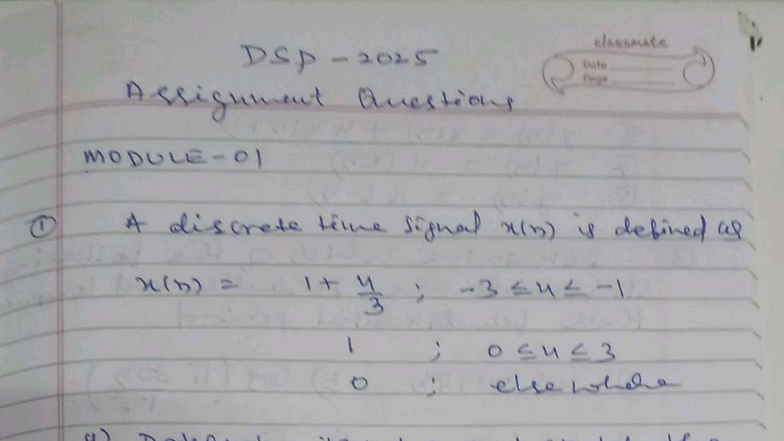 classmate
Date
Page
DSP - 2025
Assignment Questions
MODULE-01
① A discrete time signal x(n) is defined as
x(n) = 1 + n/3 ; -3 ≤ n ≤ -1
1 ; 0 ≤ n ≤ 3
0 ; elsewhere
a)